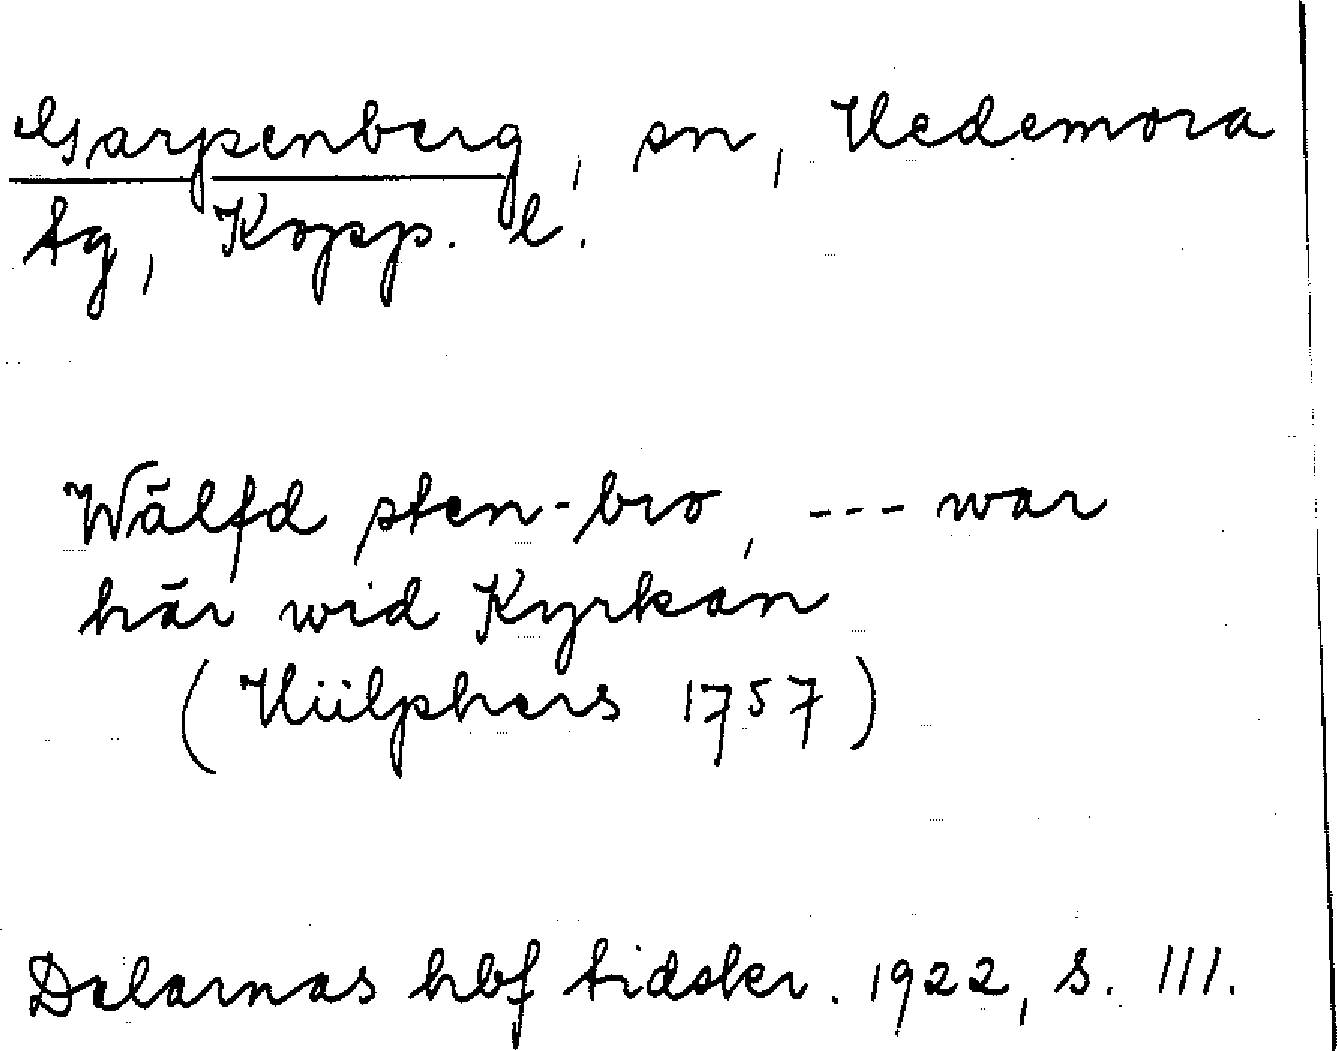 Garpenberg, sn, Vedemora
tg, Kopp. l.
Wälfd sten-bro, --- war
här wid Kyrkan
(Hülphers 1757)
Dalarnas hbf tidskr. 1922, s. 111.